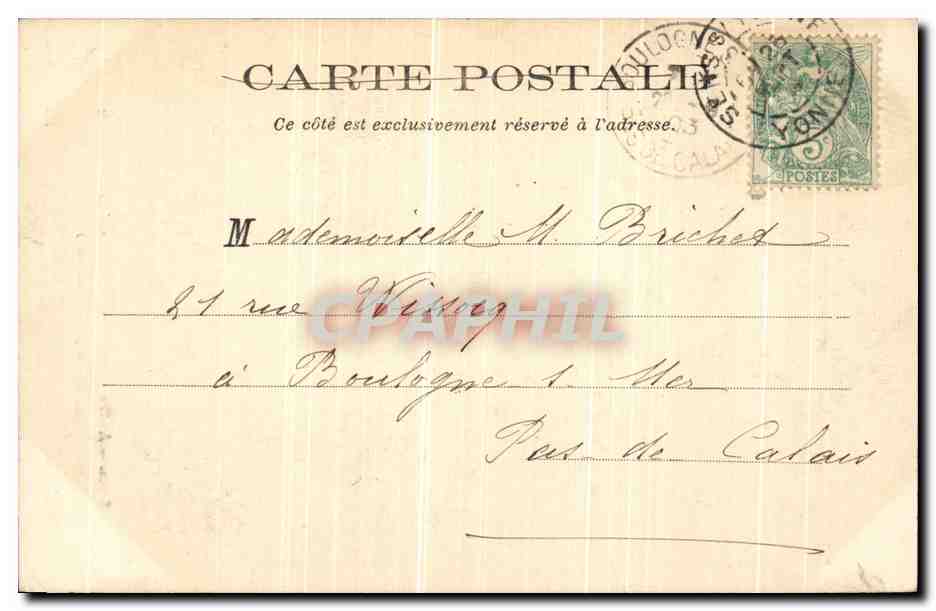 CARTE POSTALE
Ce côté est exclusivement réservé à l'adresse.
BOULOGNE
03
CALAIS
SENS
YONNE
5c
POSTES
Mademoiselle M. Brichet
21 rue Wissocq
à Boulogne s. Mer
Pas de Calais
CPAPHIL